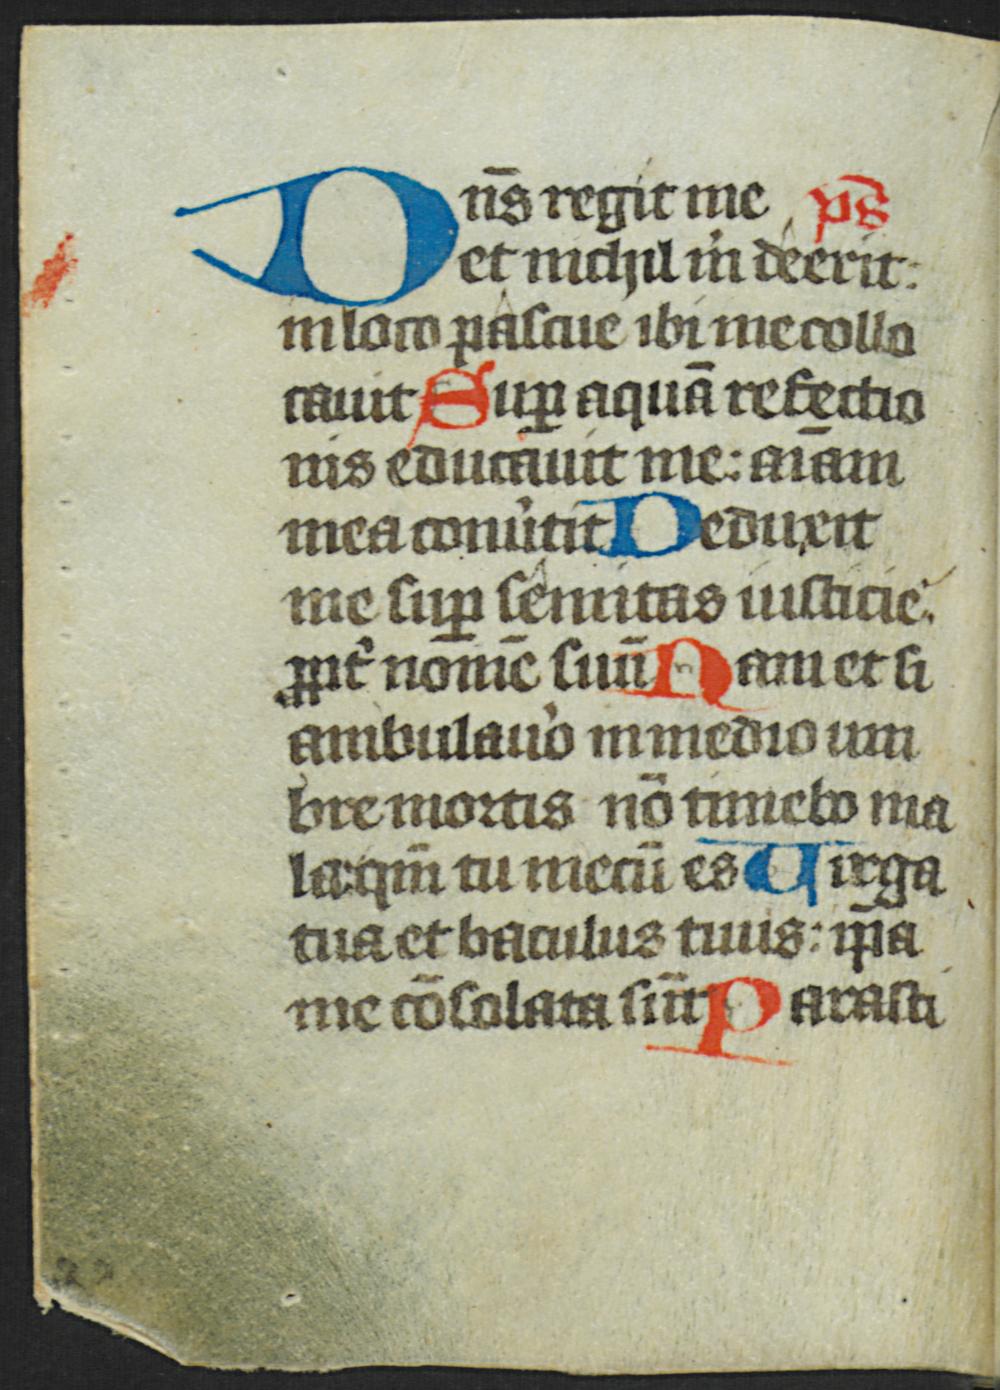 Dn̄s regit me p̄s
et nichil m̓ deerit:
in loco pascue ibi me collo
cauit Suꝑ aquā refectio
nis educauit me: aīam
mea conu̓tit Deduxit
me suꝑ semitas iusticie.
ꝓpt̓ nomē suū Nam et si
ambulau̓o in medio um
bre mortis nō timebo ma
la: qm̄ tu mecū es Uirga
tua et baculus tuus: ip̄a
me cōsolata sūt Parasti